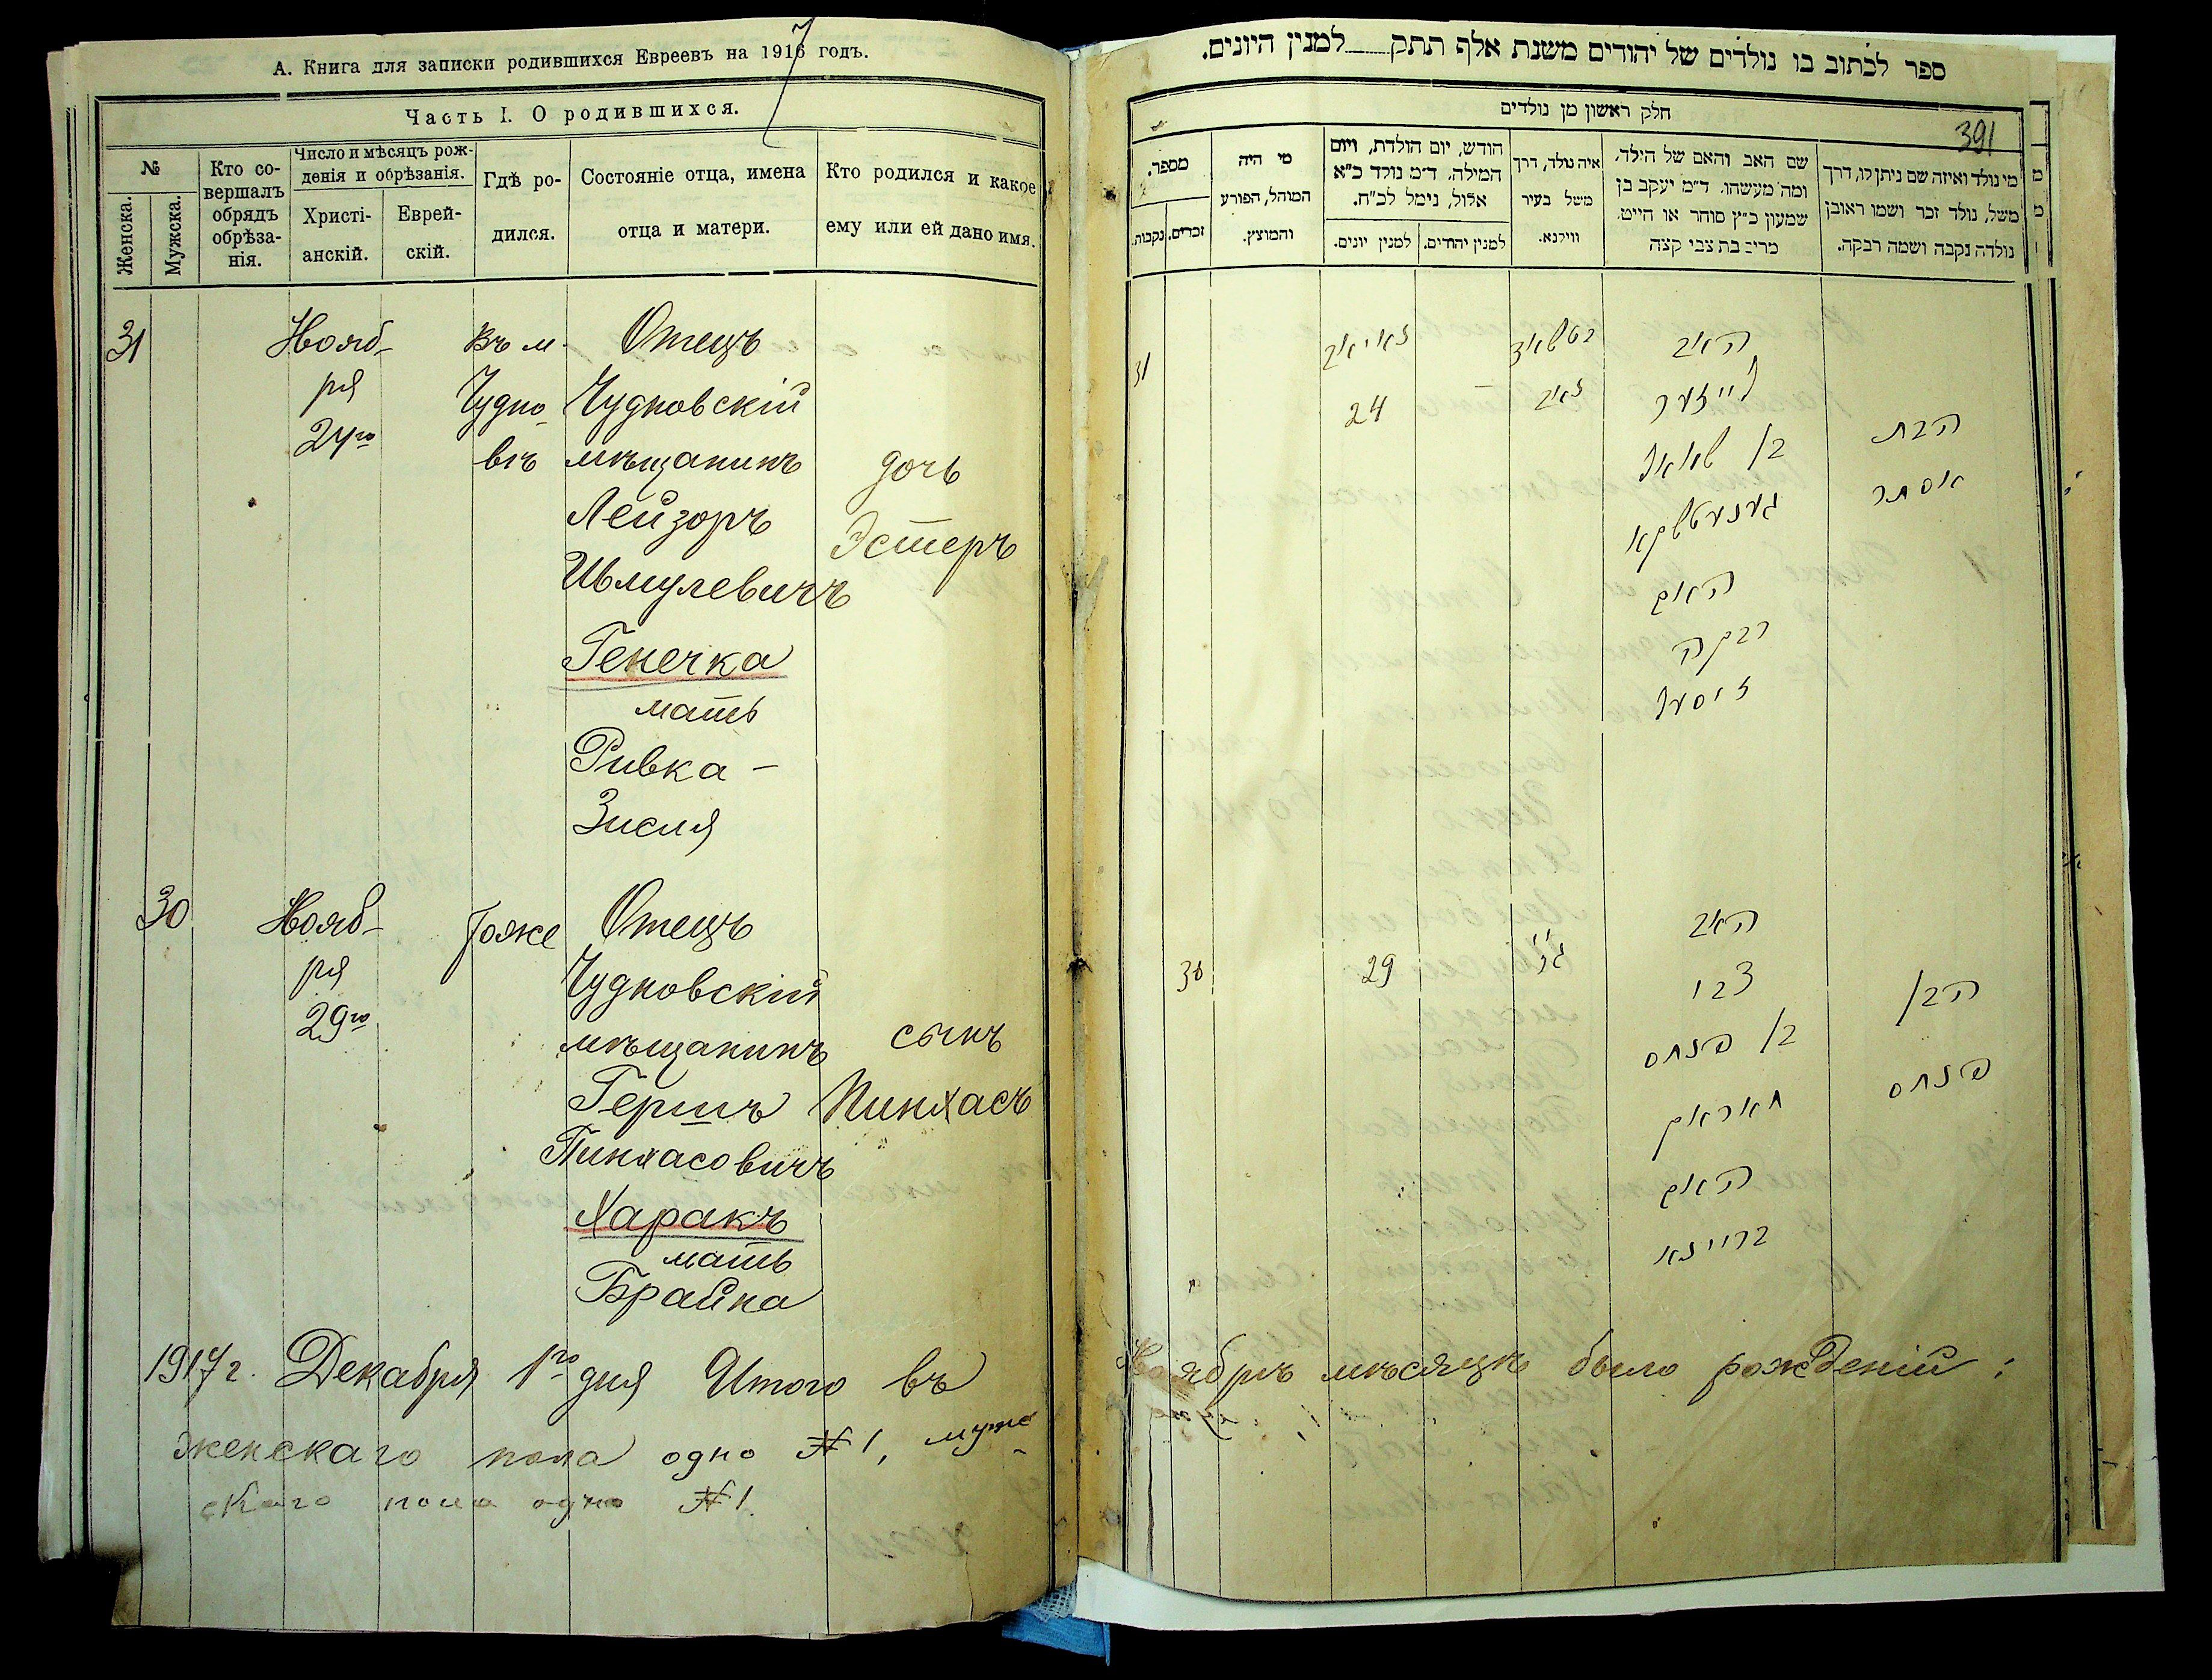 А. Книга для записки родившихся Евреевъ на 1917 годъ.
Часть I. О родившихся.
№
Женска.
Мужска.
Кто со-
вершалъ
обрядъ
обрѣза-
нія.
Число и мѣсяцъ рож-
денія и обрѣзанія.
Христі-
анскій.
Еврей-
скій.
Гдѣ ро-
дился.
Состояніе отца, имена
отца и матери.
Кто родился и какое
ему или ей дано имя.
31
Нояб-
ря
24го
Въ м.
Чудно-
вѣ
Отецъ
Чудновскій
мѣщанинъ
Лейзоръ
Шмулевичъ
Генечка
мать
Ривка-
Зисля
дочь
Эстеръ
30
Нояб-
ря
29го
Тоже
Отецъ
Чудновскій
мѣщанинъ
Гершъ
Пинхасовичъ
Харакъ
мать
Брайна
сынъ
Пинхасъ
1917 г. Декабря 1го дня Итого въ
женскаго пола одно №1, муж-
скаго пола одно №1.
ספר לכתוב בו נולדים של יהודים משנת אלף תתק למנין היונים.
391
חלק ראשון מן נולדים
מספר.
נקבות.
זכרים.
מי היה
המוהל, הפורע
והמוצץ.
חודש, יום הולדת, ויום
המילה. ד״מ נולד כ״א
אלול, נימל לכ״ח.
למנין יונים.
למנין יהודים.
איה נולד, דרך
משל בעיר
ווילנא.
שם האב והאם של הילד,
ומה מעשהו. ד״מ יעקב בן
שמעון כ״ץ סוחר או חייט.
מרים בת צבי קצה
מי נולד ואיזה שם ניתן לו, דרך
משל, נולד זכר ושמו ראובן
נולדה נקבה ושמה רבקה.
31
נאיאב
24
טשוד
נאב
האב
לייזער
בן שמואל
געגעטשקא
האם
רבקה
זיסעל
הבת
אסתר
30
29
האב
צבי
בן פנחס
חאראק
האם
בריינא
הבן
פנחס
Ноябрѣ мѣсяцѣ было рожденій: